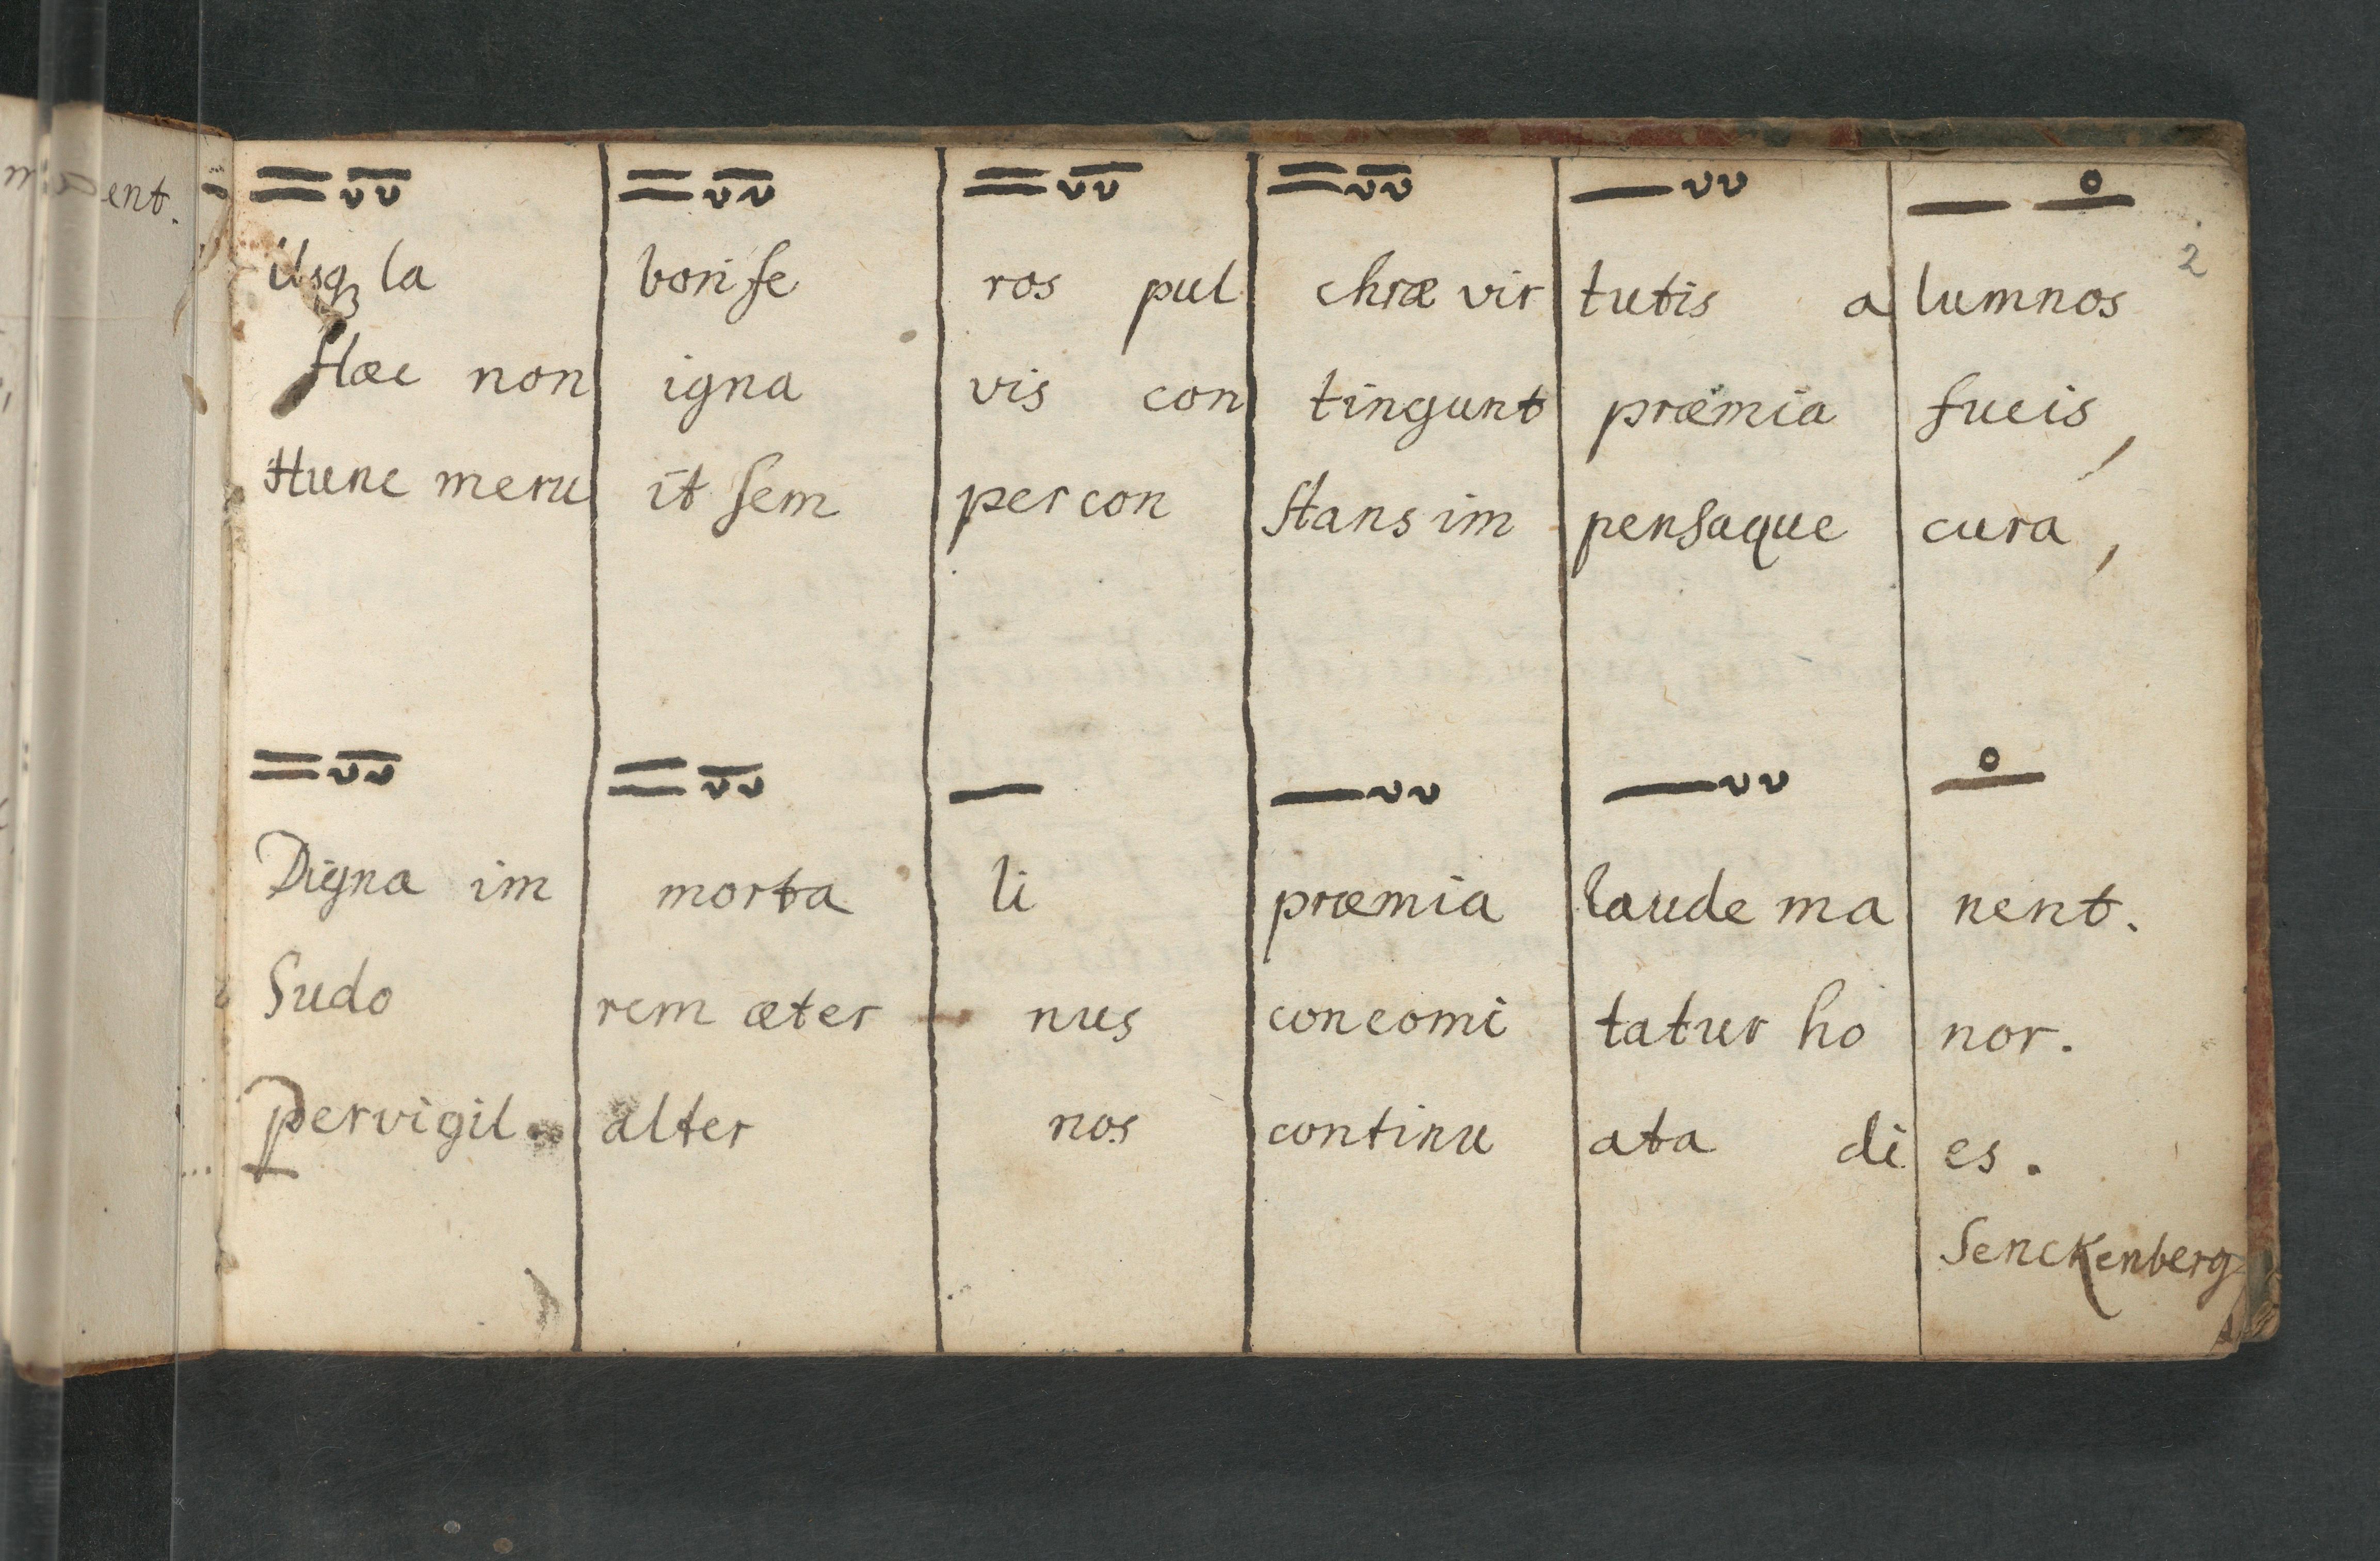 ent.
2
Usqꝫ la bori fe ros pul chræ vir tutis a lumnos
Hæc non igna vis con tingunt præmia fucis,
Hunc meru it sem per con stans im pensaque cura,
Digna im morta li præmia laude ma nent.
Sudo rem æter nus concomi tatur ho nor.
Pervigil alter nos continu ata di es.
Senckenberg